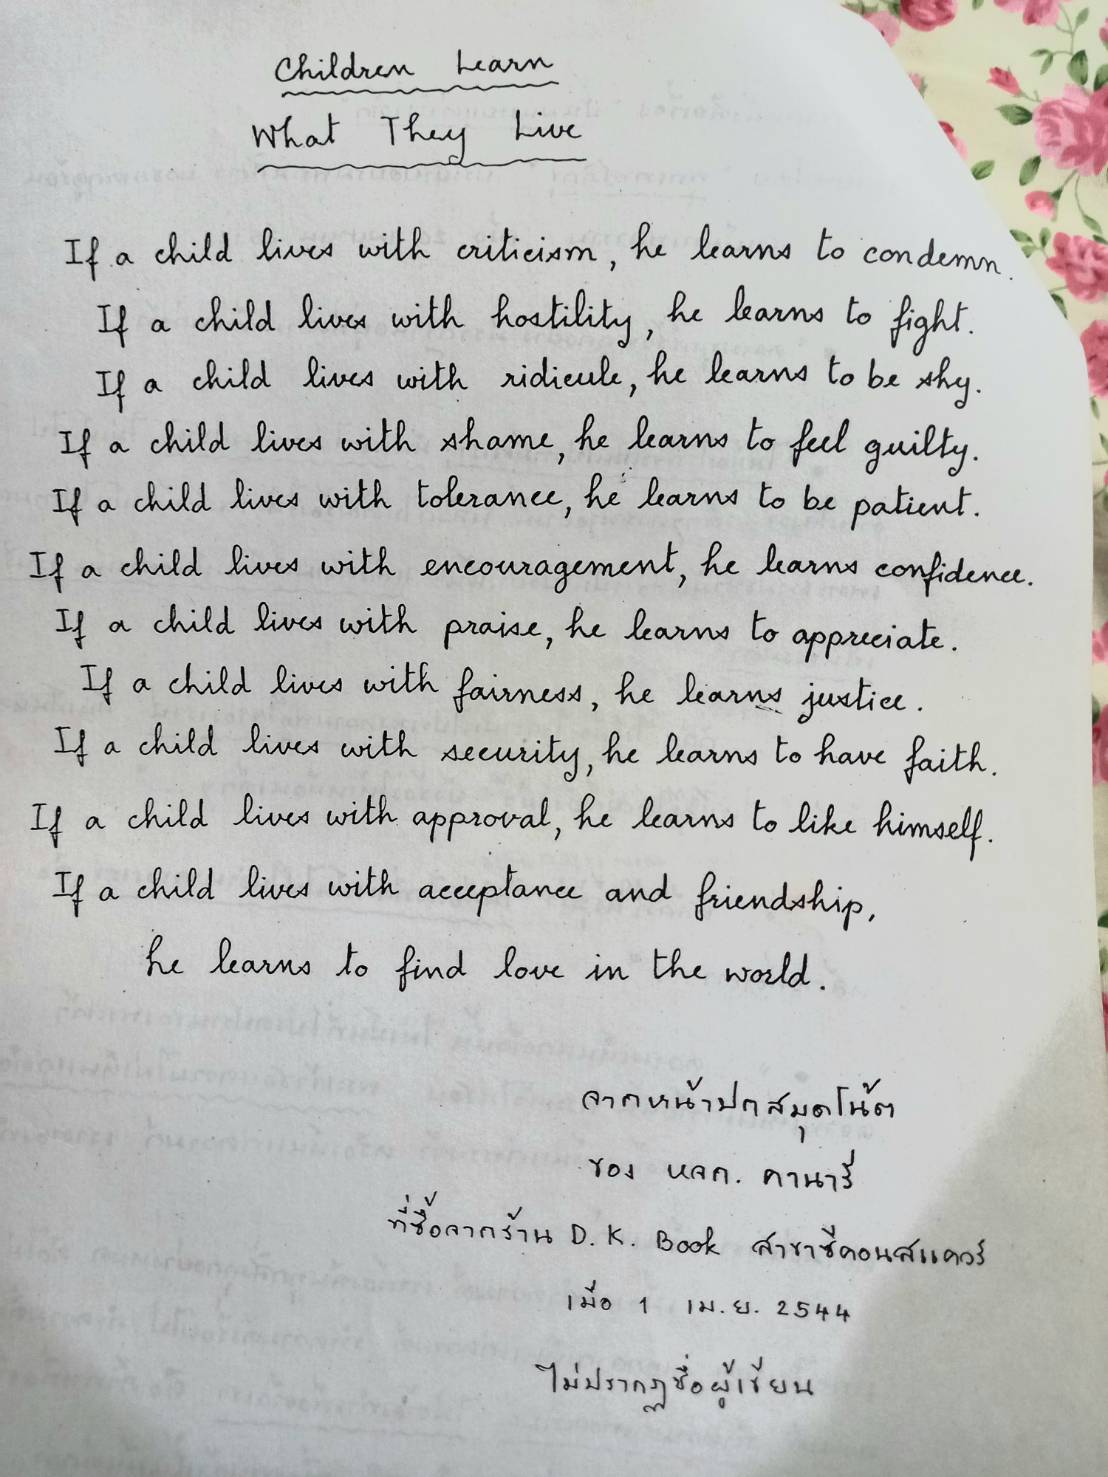 Children Learn
What They Live
If a child lives with criticism, he learns to condemn.
If a child lives with hostility, he learns to fight.
If a child lives with ridicule, he learns to be shy.
If a child lives with shame, he learns to feel guilty.
If a child lives with tolerance, he learns to be patient.
If a child lives with encouragement, he learns confidence.
If a child lives with praise, he learns to appreciate.
If a child lives with fairness, he learns justice.
If a child lives with security, he learns to have faith.
If a child lives with approval, he learns to like himself.
If a child lives with acceptance and friendship,
he learns to find love in the world.
จากหน้าปกสมุดโน้ต
ของ หจก. คานารี
ที่ซื้อจากร้าน D.K. Book สาขาซีคอนสแควร์
เมื่อ 1 เม.ย. 2544
ไม่ปรากฏชื่อผู้เขียน